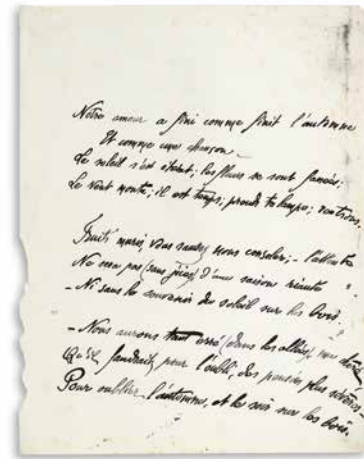 Notre amour a fini comme finit l'automne
Et comme une chanson –
Le soleil s'est éteint; les fleurs se sont fanées;
Le vent monte; il est temps; prends ta lampe; rentrons.
Fruits muris, vous saurez nous consoler; – l'attente
Ne sera pas (sans joies) d'une saison
– Ni sans le souvenir du soleil sur les bois;
– Nous aurons tant erré dans les allées, ma
Qu'il faudrait, pour l'oubli, des pensées plus sévères –
Pour oublier l'automne, et le soir sur les bois,